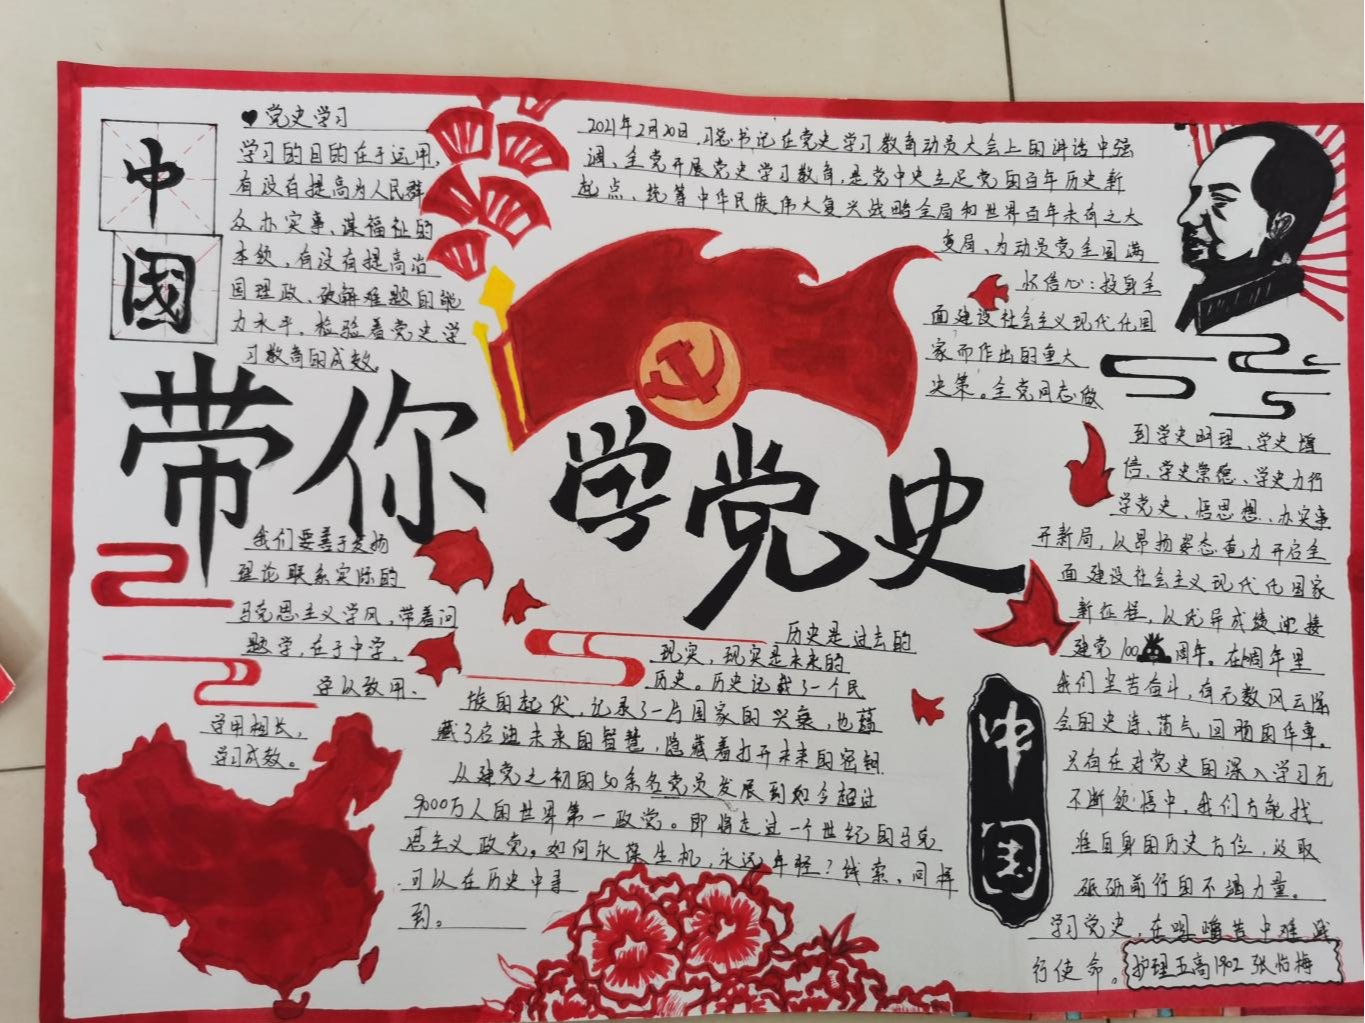 中
国
♥党史学习
学习的目的在于运用,
有没有提高为人民群
众办实事、谋福祉的
本领,有没有提高治
国理政、破解难题的能
力水平,检验着党史学
习教育的成效。
2021年2月20日,习总书记在党史学习教育动员大会上的讲话中强
调、全党开展党史学习教育,是党中史立足党的百年历史新
起点、统筹中华民族伟大复兴战略全局和世界百年未有之大
变局、为动员党全国满
怀信心:投身全
面建设社会主义现代化国
家而作出的重大
决策。全党同志做
到学史明理、学史增
信、学史崇德、学史力行
学党史、悟思想、办实事
开新局,以昂扬姿态奋力开启全
面建设社会主义现代化国家
新征程,以优异成绩迎接
建党100周年。在周年里
我们坚苦奋斗,有无数风云际
会的史诗、荡气回肠的华章。
只有在对党史的深入学习和
不断领悟中,我们方能找
准自身的历史方位,汲取
砥砺前行的不竭力量。
学习党史,在艰难苦中难 践
行使命。
护理五高1902 张怡梅
带你学党史
我们要善于发扬
理论联系实际的
马克思主义学风,带着问
题学,在于中学、
学以致用、
学用相长,
学习成效。
历史是过去的
现实,现实是未来的
历史。历史记载了一个民
族的起伏,记录了一与国家的兴衰,也蕴
藏了启迪未来的智慧,隐藏着打开未来的密钥.
从建党之初的50余名党员发展到如今超过
9000万人的世界第一政党。即将走过一个世纪的马克
思主义政党。如何永葆生机,永远年轻?线索,同样
可以在历史中寻
到。
中国